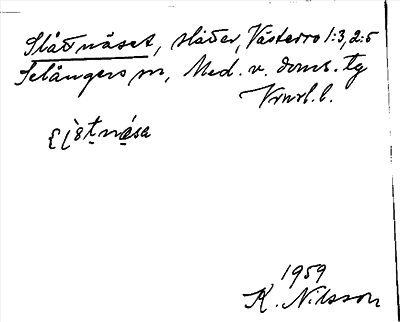 Slåttnäset, slåtter, Västerro 1:3, 2:5
Selångers sn, Med. v. doms. tg
Vrnrl. l.
1959
K. Nilsson